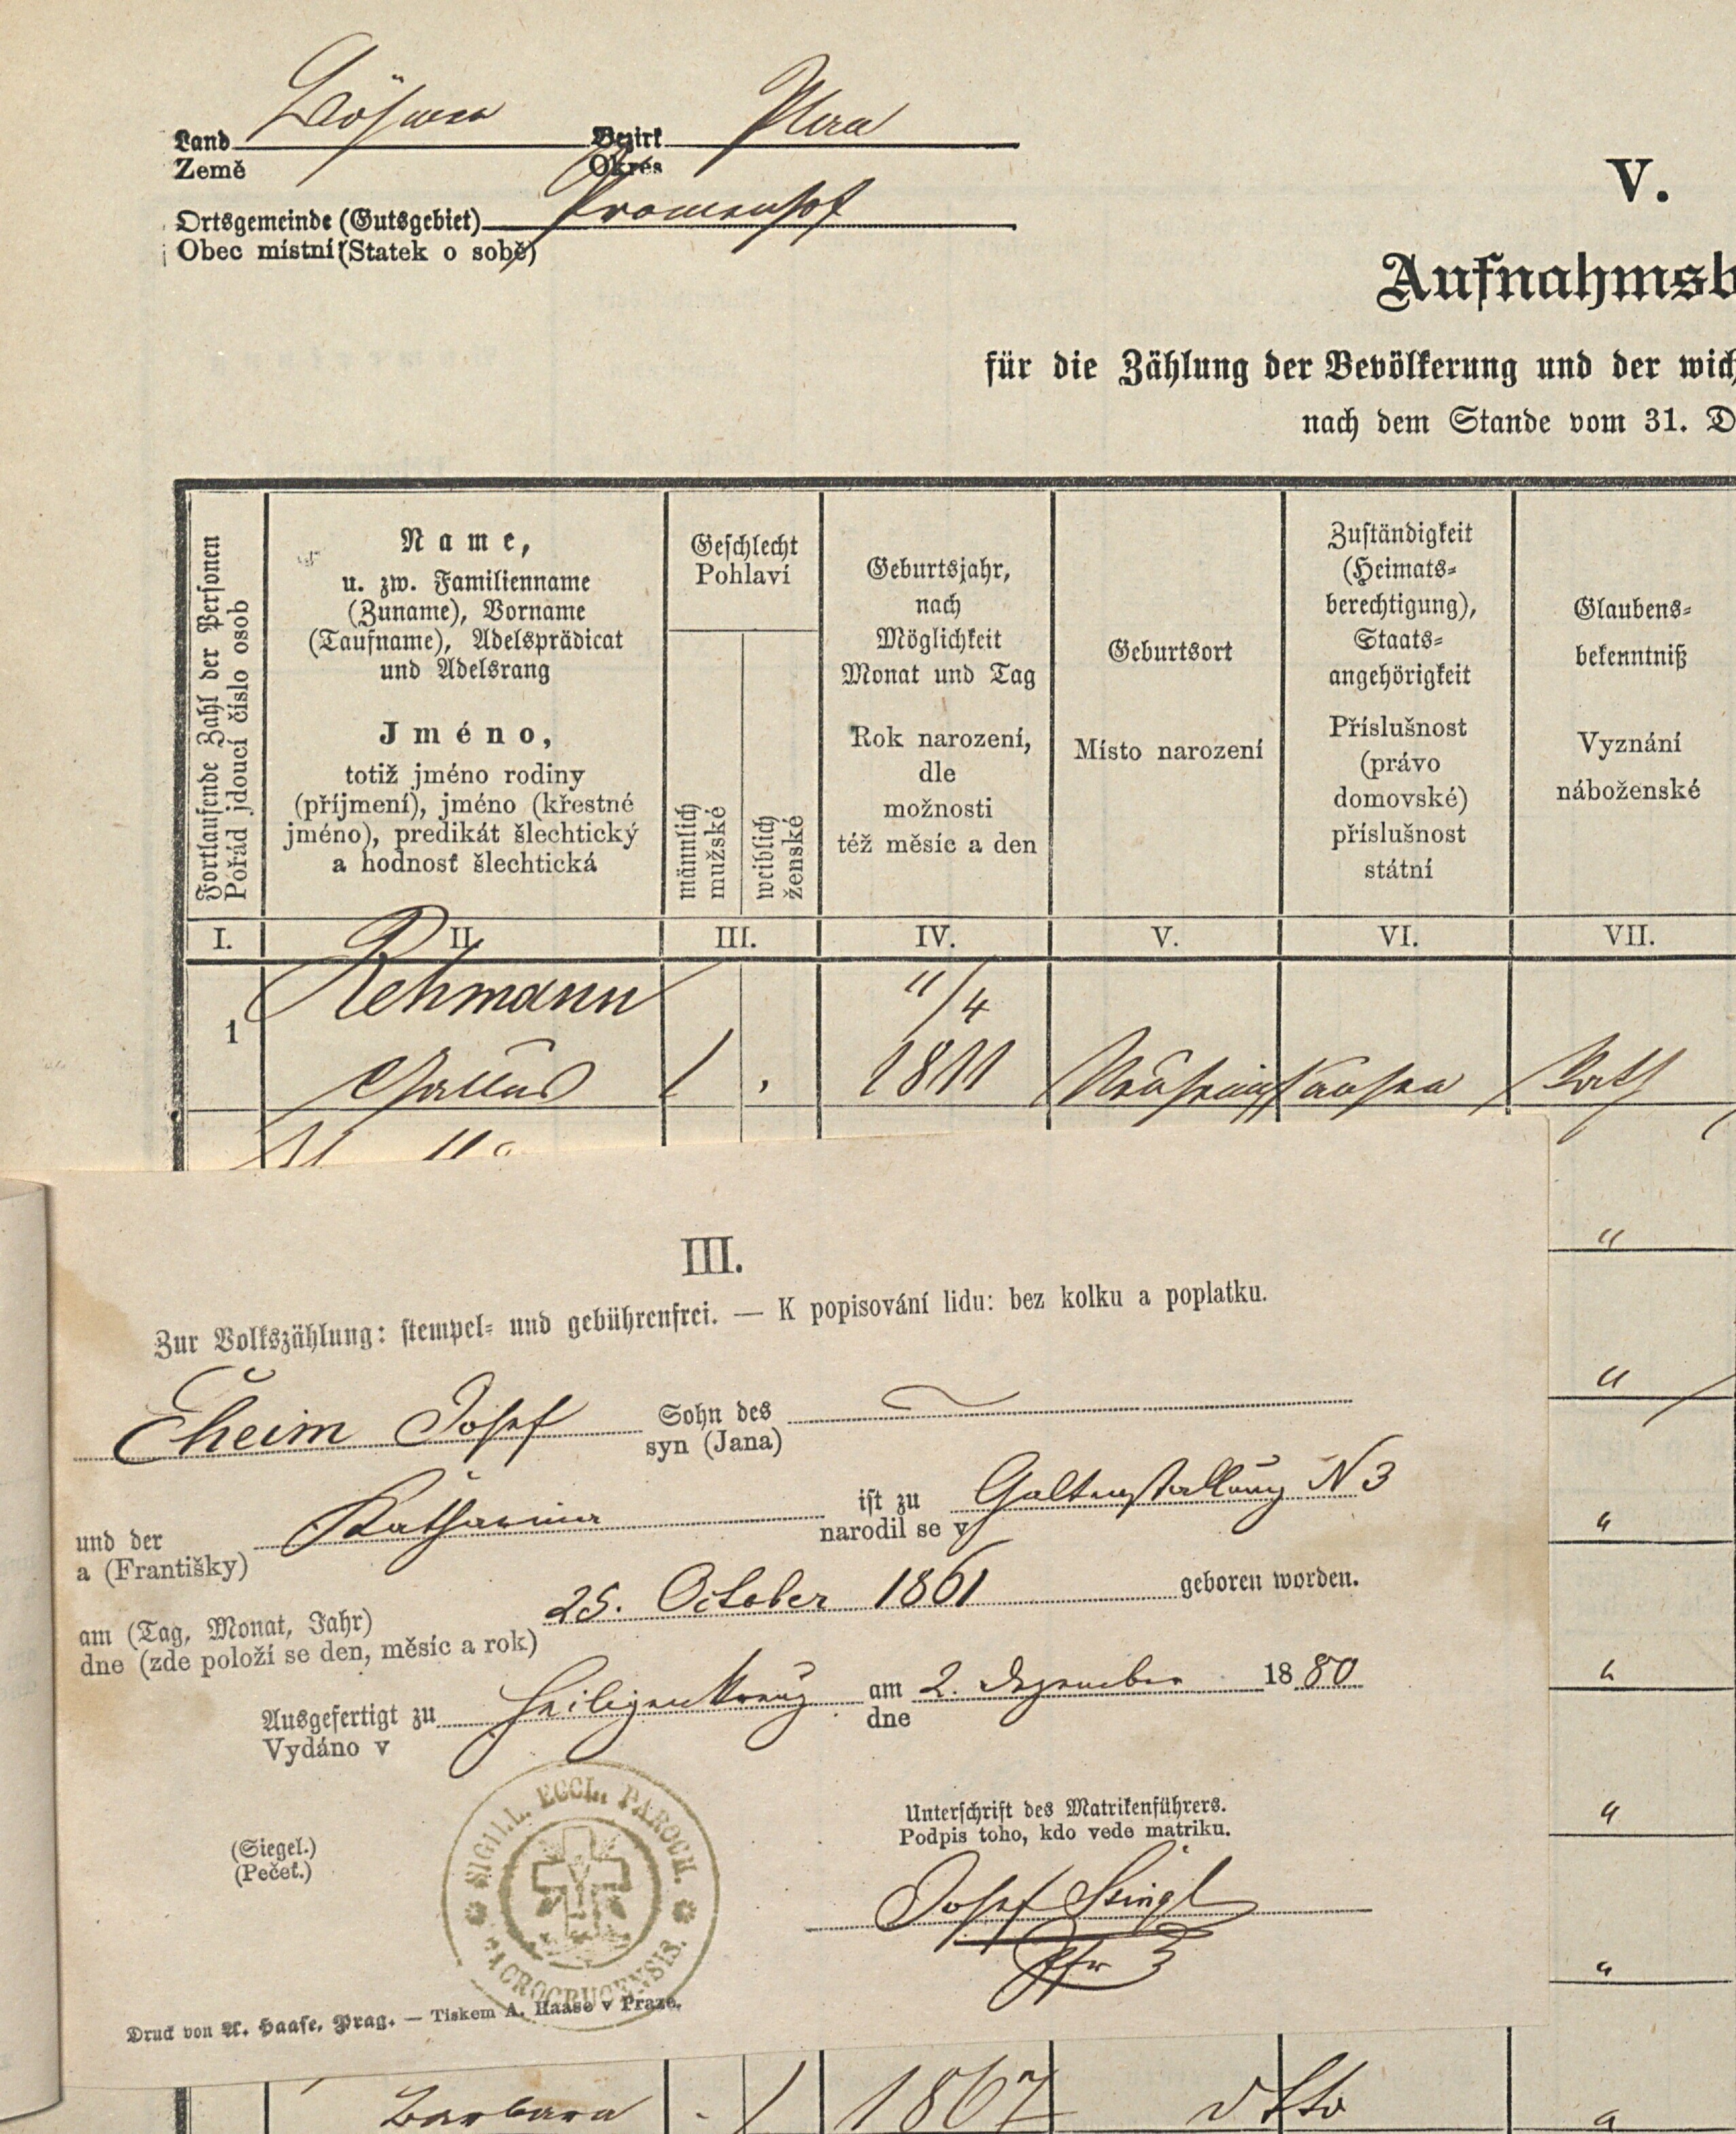 Land Böhmen Bezirk Plan
Země Okres
Ortsgemeinde (Gutsgebiet)
Obec místní (Statek o sobě)
V.
Aufnahmsb
für die Zählung der Bevölkerung und der wich
nach dem Stande vom 31. D
Fortlaufende Zahl der Personen
Pořád jdoucí číslo osob
Name,
u. zw. Familienname
(Zuname), Vorname
(Taufname), Adelsprädicat
und Adelsrang
Jméno,
totiž jméno rodiny
(příjmení), jméno (křestné
jméno), predikát šlechtický
a hodnosť šlechtická
Geschlecht
Pohlaví
männlich
mužské
weiblich
ženské
Geburtsjahr,
nach
Möglichkeit
Monat und Tag
Rok narození,
dle
možnosti
též měsíc a den
Geburtsort
Místo narození
Zuständigkeit
(Heimats=
berechtigung),
Staats=
angehörigkeit
Příslušnost
(právo
domovské)
příslušnost
státní
Glaubens=
bekenntniß
Vyznání
náboženské
I. II. III. IV. V. VI. VII.
Rehmann 11/4
1 Gallus 1 . 1811 Kath
"
"
"
"
"
"
III.
Zur Volkszählung: stempel= und gebührenfrei. — K popisování lidu: bez kolku a poplatku.
Eheim Josef Sohn des
syn (Jana)
und der Katharina ist zu Galtenstallung N 3
a (Františky) narodil se v
am (Tag, Monat, Jahr) 25. October 1861 geboren worden.
dne (zde položí se den, měsíc a rok)
Ausgefertigt zu Heiligenkreuz am 2. Dezember 1880
Vydáno v dne
SIGILL. ECCL. PAROCH.
SACROCRUCENSIS.
(Siegel.)
(Pečeť.)
Unterschrift des Matrikenführers.
Podpis toho, kdo vede matriku.
Josef
Pfr
Druck von A. Haase, Prag. — Tiskem A. Haase v Praze.
Barbara . / 1867 dtto "